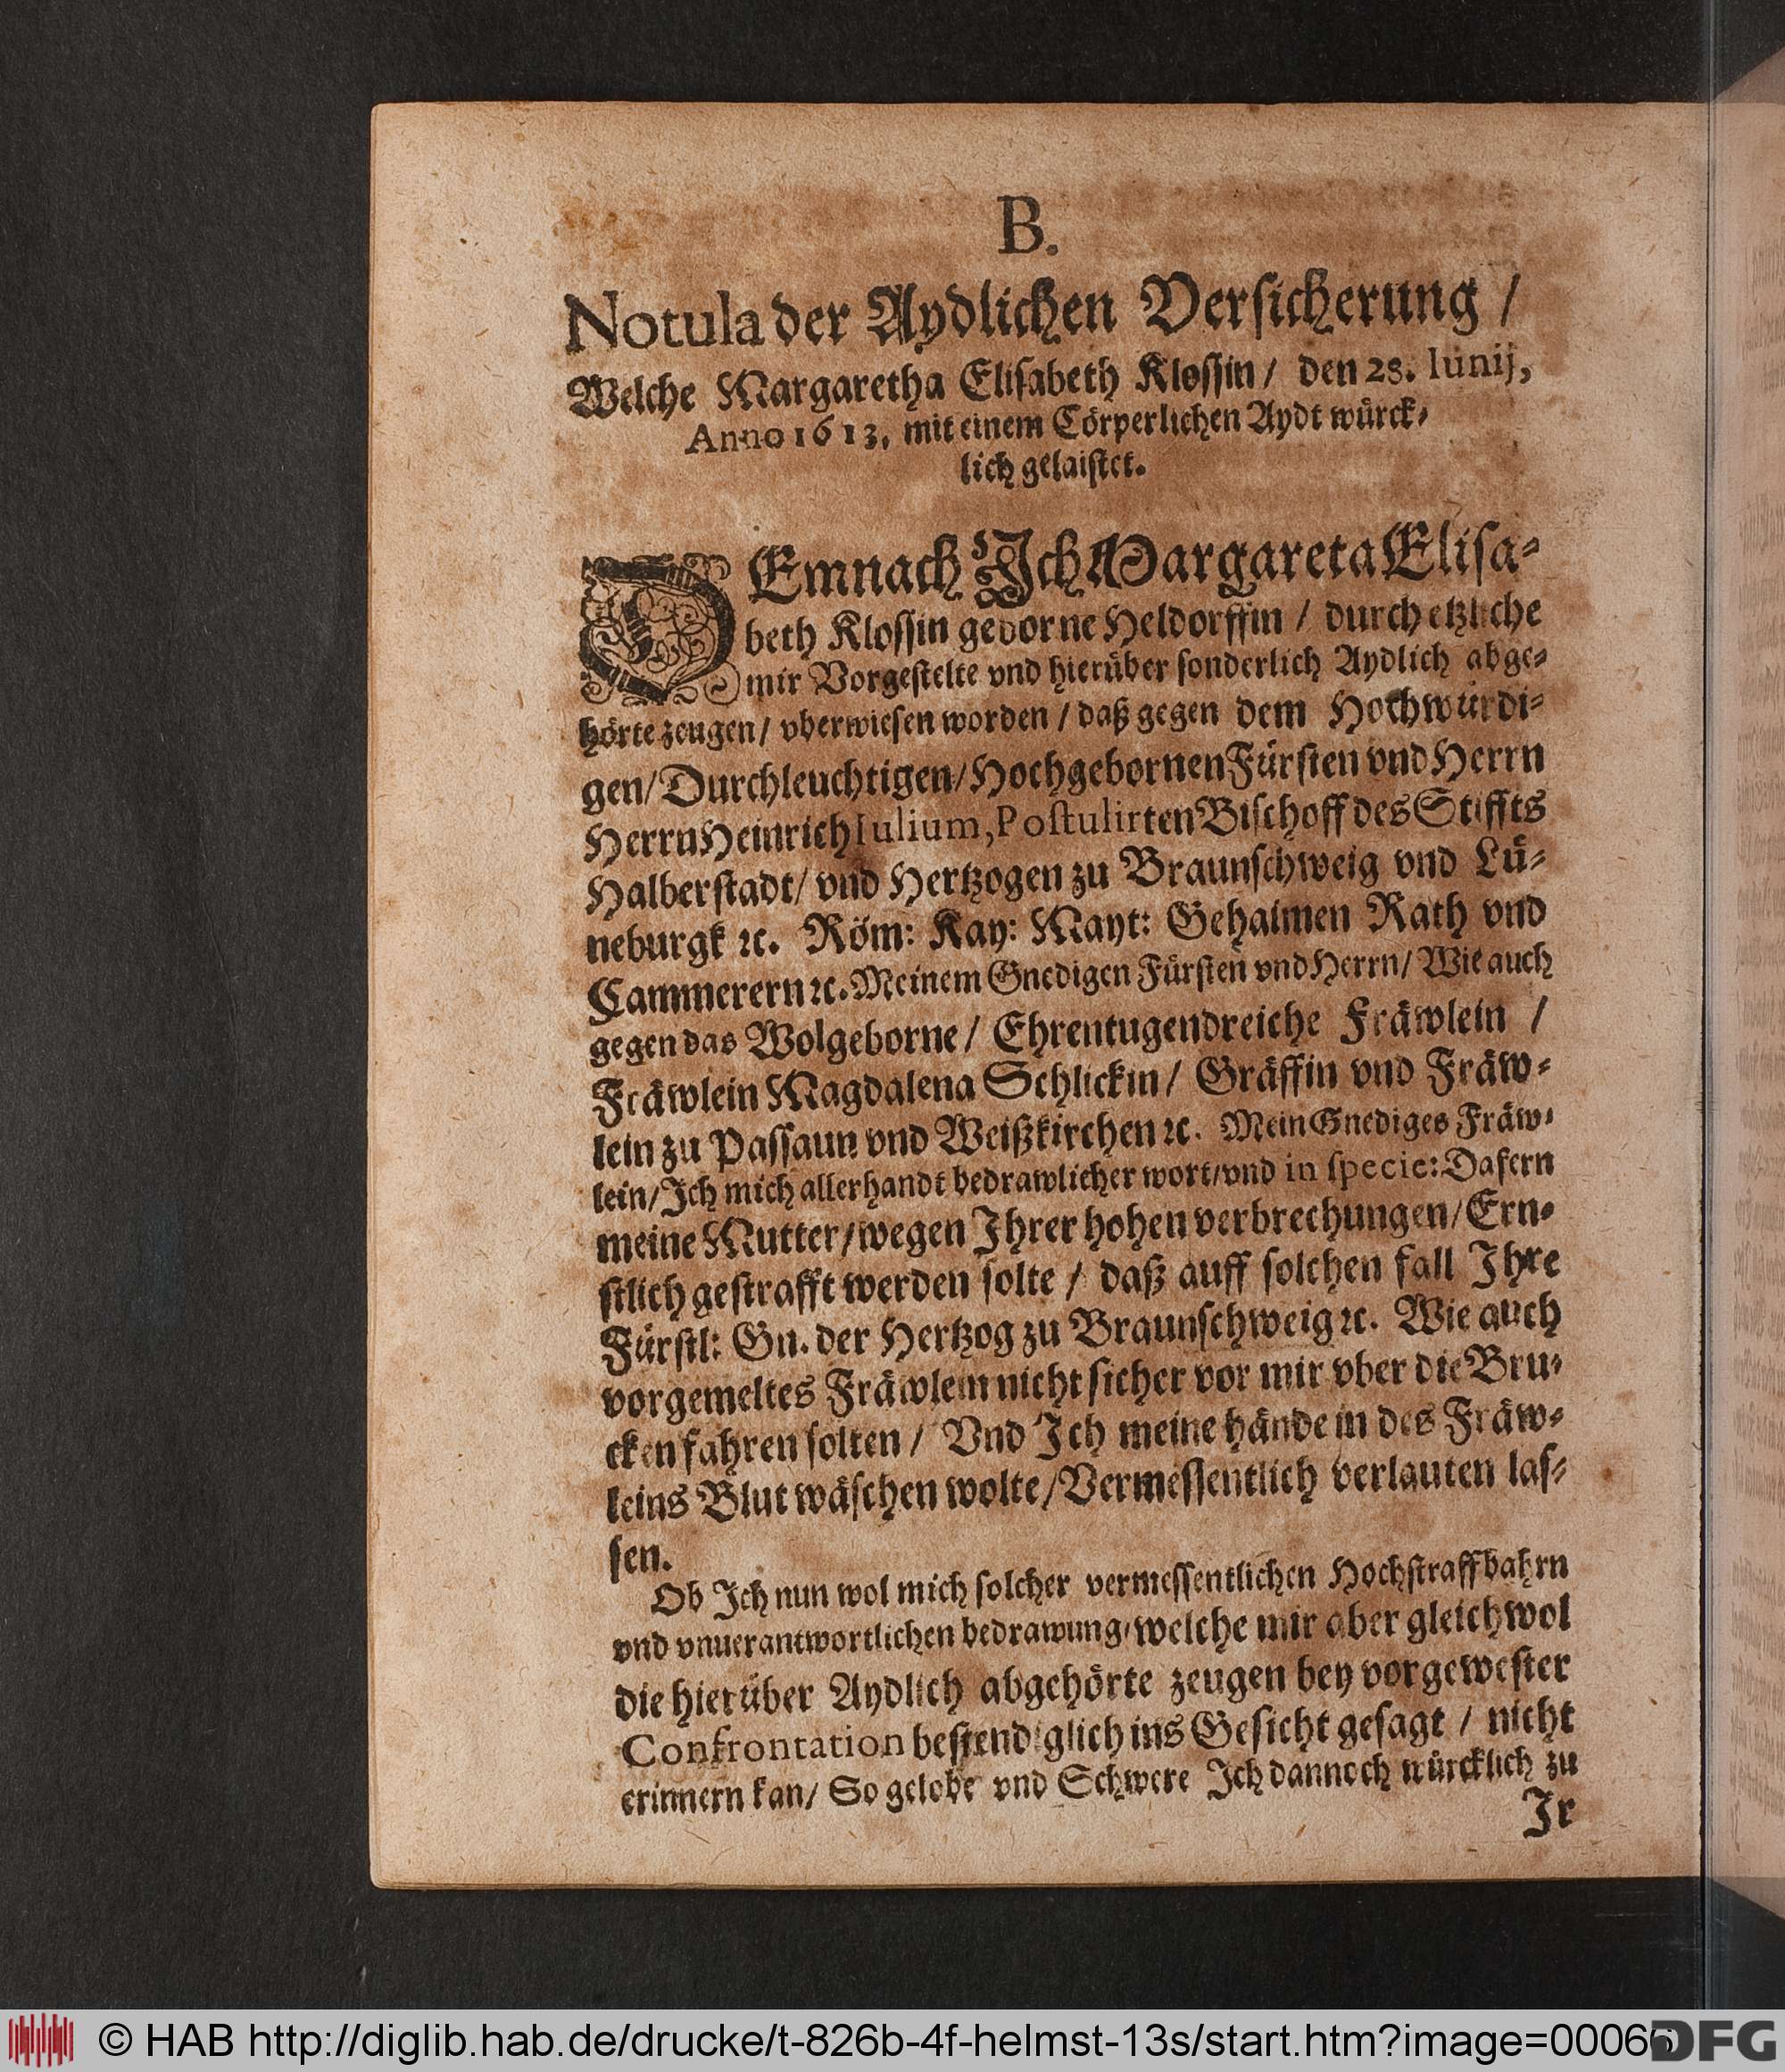 B.
Notula der Aydlichen Versicherung /
Welche Margaretha Elisabeth Klossin / den 28. Iunij,
Anno 1613, mit einem Cörperlichen Aydt würck-
lich gelaistet.
DEmnach Ich Margareta Elisa-
beth Klossin geborne Heldorffin / durch etzliche
mir Vorgestelte vnd hierüber sonderlich Aydlich abge-
hörte zeugen / vberwiesen worden / daß gegen dem Hochwürdi-
gen / Durchleuchtigen / Hochgebornen Fürsten vnd Herrn
Herrn Heinrich Iulium, Postulirten Bischoff des Stiffts
Halberstadt / vnd Hertzogen zu Braunschweig vnd Lü-
neburgk ꝛc. Röm: Kay: Mayt: Gehaimen Rath vnd
Cammerern ꝛc. Meinem Gnedigen Fürsten vnd Herrn / Wie auch
gegen das Wolgeborne / Ehrentugendreiche Fräwlein /
Fräwlein Magdalena Schlickin / Gräffin vnd Fräw-
lein zu Passaun vnd Weißkirchen ꝛc. Mein Gnediges Fräw-
lein / Ich mich allerhandt bedrawlicher wort / vnd in specie: Dafern
meine Mutter / wegen Ihrer hohen verbrechungen / Ern-
stlich gestrafft werden solte / daß auff solchen fall Ihre
Fürstl: Gn. der Hertzog zu Braunschweig ꝛc. Wie auch
vorgemeltes Fräwlein nicht sicher vor mir vber die Bru-
cken fahren solten / Vnd Ich meine hände in des Fräw-
leins Blut wäschen wolte / Vermessentlich verlauten las-
sen.
Ob Ich nun wol mich solcher vermessentlichen Hochstraffbahrn
vnd vnuerantwortlichen bedrawung / welche mir aber gleichwol
die hierüber Aydlich abgehörte zeugen bey vorgewester
Confrontation bestendiglich ins Gesicht gesagt / nicht
erinnern kan / So gelobe vnd Schwere Ich dannoch würcklich zu
Ir
© HAB http://diglib.hab.de/drucke/t-826b-4f-helmst-13s/start.htm?image=00066
DFG